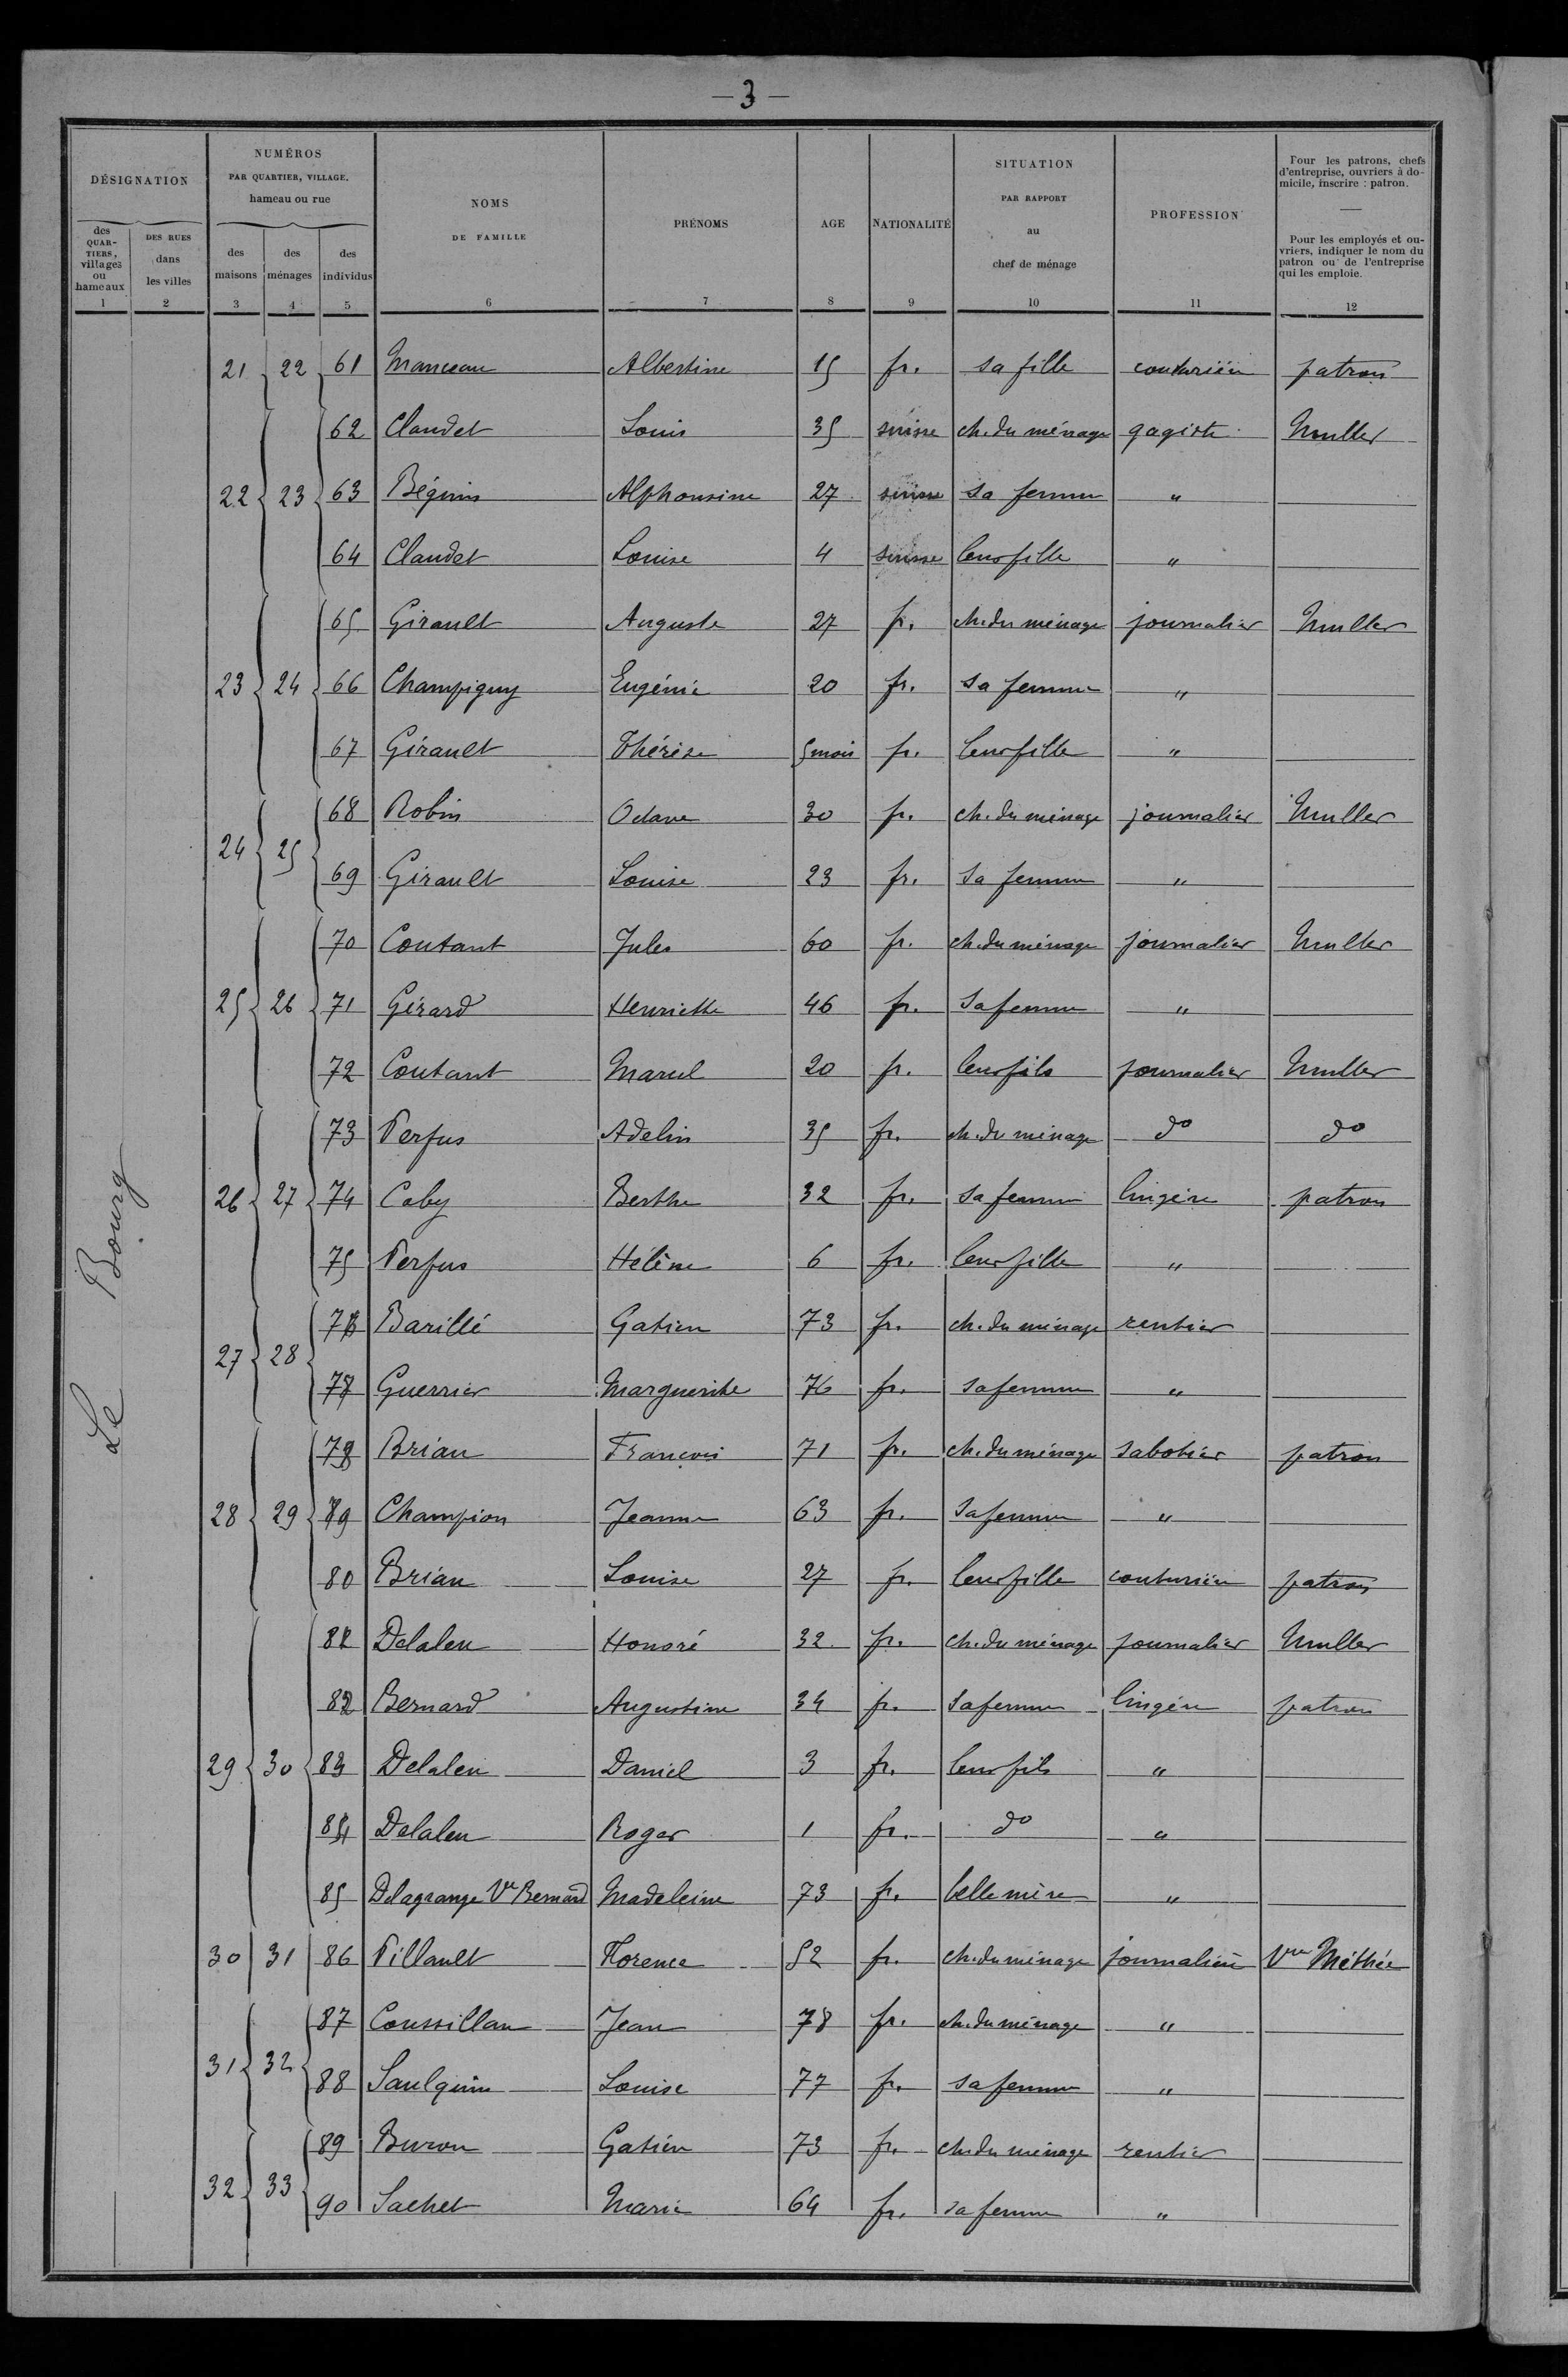 — 3 —
DÉSIGNATION
NUMÉROS
PAR QUARTIER, VILLAGE.
hameau ou rue
NOMS
DE FAMILLE
PRÉNOMS
AGE
NATIONALITÉ
SITUATION
PAR RAPPORT
au
chef de ménage
PROFESSION
Pour les patrons, chefs
d'entreprise, ouvriers à do-
micile, inscrire : patron.
Pour les employés et ou-
vriers, indiquer le nom du
patron ou de l'entreprise
qui les emploie.
des
QUAR-
TIERS,
villages
ou
hameaux
DES RUES
dans
les villes
des
maisons
des
ménages
des
individus
1 2 3 4 5 6 7 8 9 10 11 12
Le Bourg
21 22 61 Manceau Albertine 15 fr. sa fille couturière patron
62 Claudet Louis 35 suisse ch. du ménage gagiste Muller
22 23 63 Béguin Alphonsine 27 suisse sa femme "
64 Claudet Louise 4 suisse leur fille "
65 Girault Auguste 27 fr. ch. du ménage journalier Muller
23 24 66 Champigny Eugénie 20 fr. sa femme "
67 Girault Thérèse 5 mois fr. leur fille "
68 Robin Octave 30 fr. ch. du ménage journalier Muller
24 25
69 Girault Louise 23 fr. sa femme "
70 Coutant Jules 60 fr. ch. du ménage journalier Muller
25 26 71 Gérard Henriette 46 fr. sa femme "
72 Coutant Marcel 20 fr. leur fils journalier Muller
73 Perfus Adelin 35 fr. ch. du ménage do do
26 27 74 Caby Berthe 32 fr. sa femme lingère patron
75 Perfus Hélène 6 fr. leur fille "
76 Barillé Gatien 73 fr. ch. du ménage rentier
27 28
77 Guerrier Marguerite 76 fr. sa femme "
78 Brian François 71 fr. ch. du ménage sabotier patron
28 29 79 Champion Jeanne 63 fr. sa femme "
80 Brian Louise 27 fr. leur fille couturière patron
81 Delaleu Honoré 32 fr. ch. du ménage journalier Muller
82 Bernard Augustine 34 fr. sa femme lingère patron
29 30 83 Delaleu Daniel 3 fr. leur fils "
84 Delaleu Roger 1 fr. do "
85 Delagrange Ve Bernard Madeleine 73 fr. belle mère "
30 31 86 Pillault Florence 52 fr. ch. du ménage journalière Vve Méthée
87 Coussillan Jean 78 fr. ch. du ménage "
31 32
88 Saulquin Louise 77 fr. sa femme "
89 Buron Gatien 73 fr. ch. du ménage rentier
32 33
90 Sachet Marie 64 fr. sa femme "